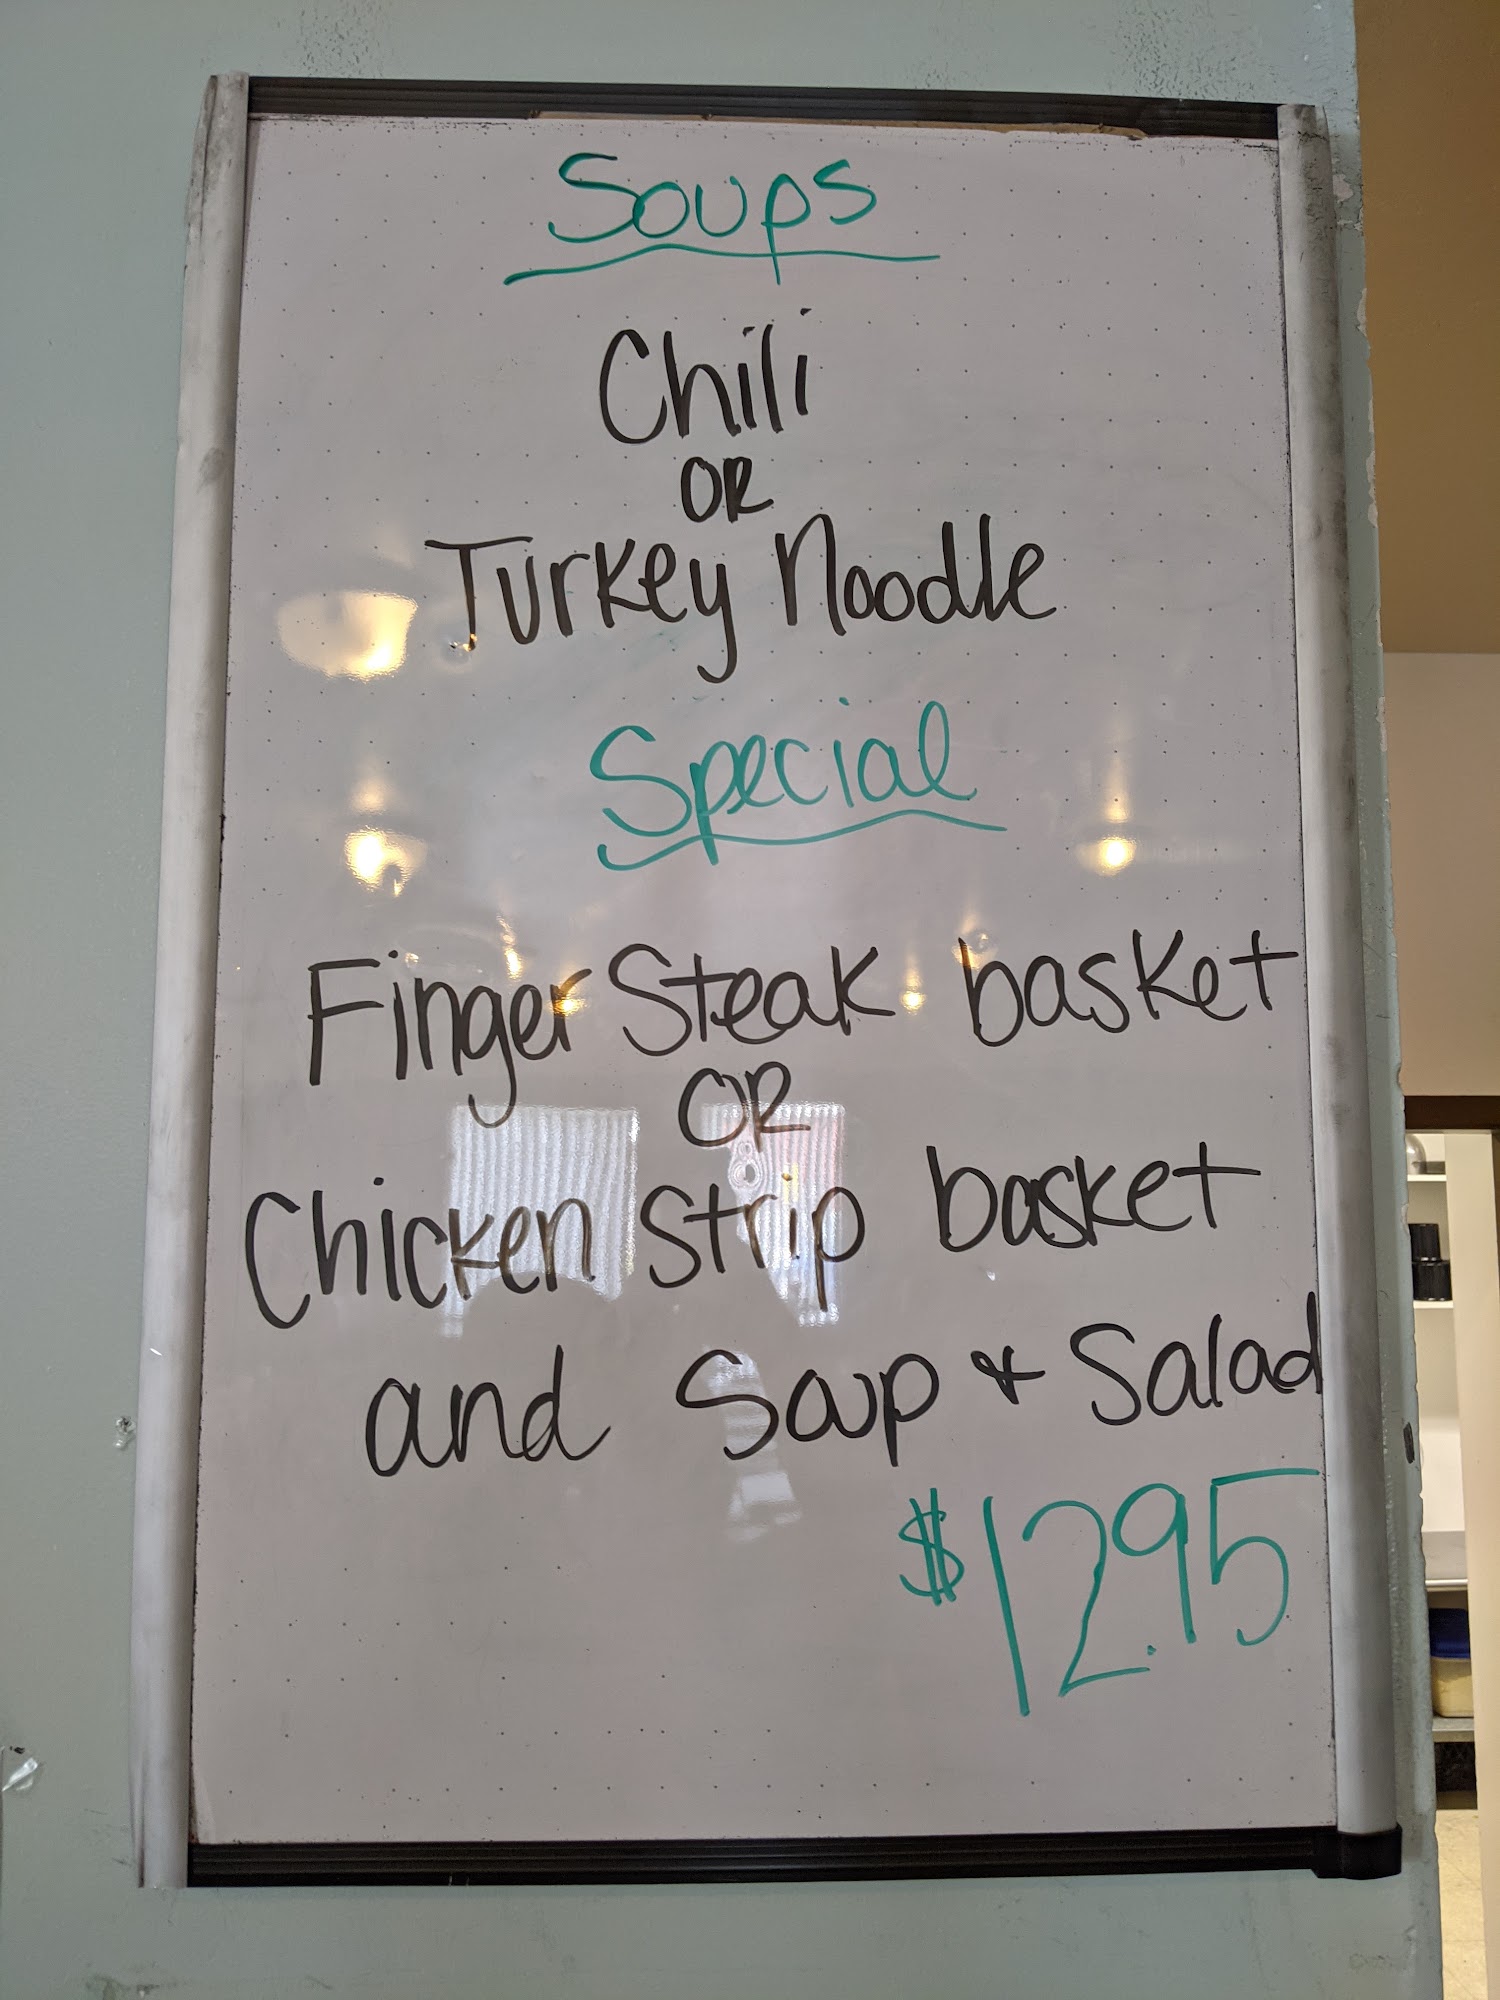 Soups
Chili
OR
Turkey Noodle
Special
Finger Steak basket
OR
Chicken Strip basket
and Soup & Salad
$12.95